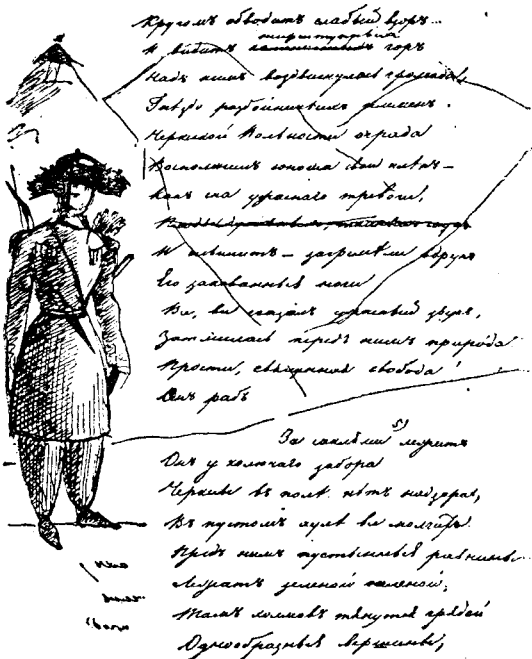 Кругомъ обводитъ слабый взоръ...
неприступныхъ
И видитъ горъ
Надъ нимъ воздвигнулась громада,
Гнѣздо разбойничьихъ племенъ.
Черкеской Вольности ограда
Воспомнилъ юноша свой плѣнъ —
Какъ сна ужаснаго тревоги,
И слышитъ — загремѣли вдругъ
Его закованныя ноги
Все, все сказалъ ужасный звукъ,
Затмилась передъ нимъ природа
Прости, священная свобода!
Онъ рабъ
За саклями 5) лежитъ
Онъ у колючаго забора
Черкесы въ полѣ, нѣтъ надзора,
Въ пустомъ аулѣ все молчитъ.
Предъ нимъ пустынныя равнины
Лежатъ зеленой пеленой;
Тамъ холмовъ тянутся грядой
Однообразныя вершины;